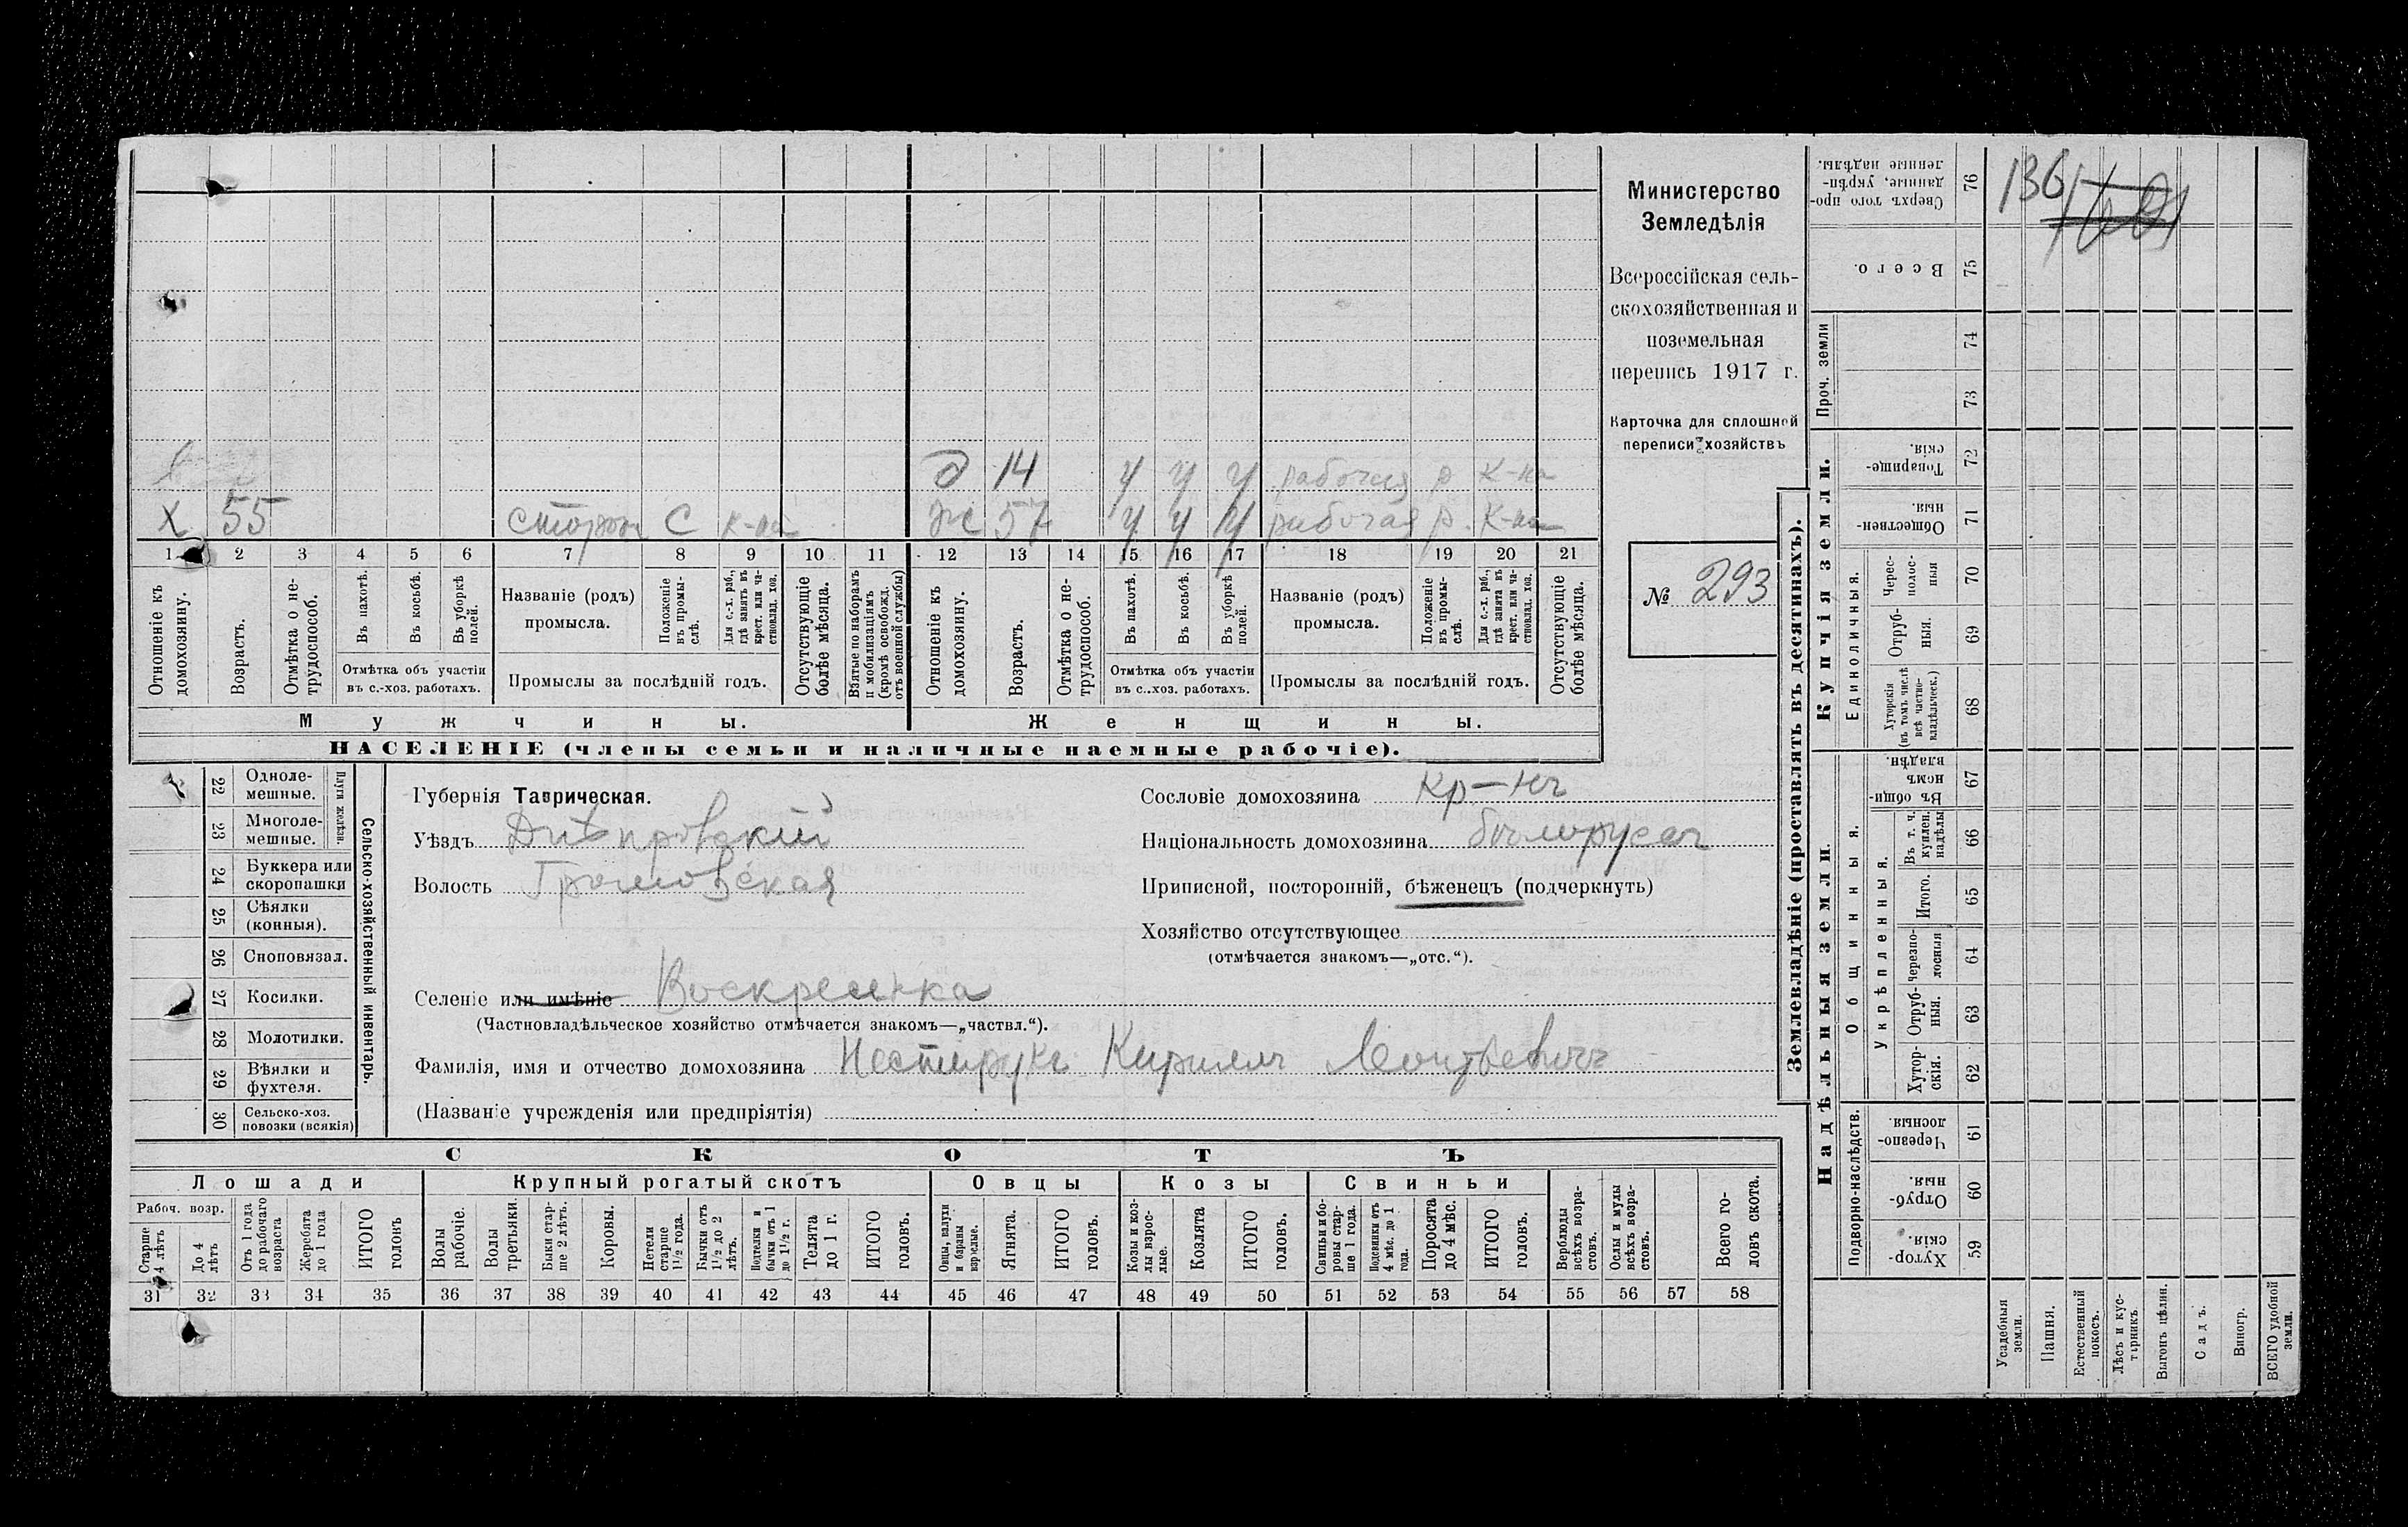 136
д 14 у у у рабочая р к-на
х 55 сторож С к-на ж 57 у у у рабочая р. к-на
1 2 3 4 5 6 7 8 9 10 11 12 13 14 15 16 17 18 19 20 21
Отношеніе къ домохозяину.
Возрастъ.
Отмѣтка о не-трудоспособ.
Въ пахотѣ.
Въ косьбѣ.
Въ уборкѣ полей.
Отмѣтка объ участіи
въ с.-хоз. работахъ.
Названіе (родъ)
промысла.
Положеніе въ промы-слѣ.
Для с.-х. раб., гдѣ занятъ въ крест. или ча-стновлад. хоз.
Промыслы за послѣдній годъ.
Отсутствующіе болѣе мѣсяца.
Взятые по наборамъ и мобилизаціямъ (кромѣ освобожд. отъ военной службы)
Отношеніе къ домохозяину.
Возрастъ.
Отмѣтка о не-трудоспособ.
Въ пахотѣ.
Въ косьбѣ.
Въ уборкѣ полей.
Отмѣтка объ участіи
въ с..хоз. работахъ.
Названіе (родъ)
промысла.
Положеніе въ промы-слѣ.
Для с.-х. раб., гдѣ занята въ крест. или ча-стновлад. хоз.
Промыслы за послѣдній годъ.
Отсутствующіе болѣе мѣсяца.
Мужчины. Женщины.
НАСЕЛЕНІЕ (члены семьи и наличные наемные рабочіе).
Министерство
Земледѣлія
Всероссійская сель-
скохозяйственная и
поземельная
перепись 1917 г.
Карточка для сплошной
переписи хозяйствъ
№ 293
Сельско-хозяйственный инвентарь.
Плуги желѣзн.
22 Одноле-мешные.
23 Многоле-мешные.
24 Буккера или скоропашки
25 Сѣялки (конныя).
26 Сноповязал.
27 Косилки.
28 Молотилки.
29 Вѣялки и фухтеля.
30 Сельско-хоз. повозки (всякія)
Губернія Таврическая.
Уѣздъ Днѣпровскій
Волость Громовская
Селеніе или имѣніе Воскресенка
(Частновладѣльческое хозяйство отмѣчается знакомъ—„частвл.“).
Фамилія, имя и отчество домохозяина Нестерукъ Кириллъ
(Названіе учрежденія или предпріятія)
Сословіе домохозяина кр-нъ
Національность домохозяина бѣлорусъ
Приписной, посторонній, бѣженецъ (подчеркнуть)
Хозяйство отсутствующее
(отмѣчается знакомъ—„отс.“).
СКОТЪ
Лошади Крупный рогатый скотъ Овцы Козы Свиньи
Рабоч. возр.
Старше 4 лѣтъ
До 4 лѣтъ
Отъ 1 года до рабочаго возраста
Жеребята до 1 года
ИТОГО головъ
Волы рабочіе.
Волы третьяки.
Быки стар-ше 2 лѣтъ.
Коровы.
Нетели старше 1½ года.
Бычки отъ 1½ до 2 лѣтъ.
Подтелки и бычки отъ 1 до 1½ г.
Телята до 1 г.
ИТОГО головъ.
Овцы, валухи и бараны взрослые.
Ягнята.
ИТОГО головъ.
Козы и коз-лы взрос-лые.
Козлята
ИТОГО головъ.
Свиньи и бо-ровы стар-ше 1 года.
Подсвинки отъ 4 мѣс. до 1 года.
Поросята до 4 мѣс.
ИТОГО головъ.
Верблюды всѣхъ возра-стовъ.
Ослы и мулы всѣхъ возра-стовъ.
Всего го-ловъ скота.
31 32 33 34 35 36 37 38 39 40 41 42 43 44 45 46 47 48 49 50 51 52 53 54 55 56 57 58
Землевладѣніе (проставлять въ десятинахъ).
Надѣльныя земли.
Купчія земли.
Проч. земли
Подворно-наслѣдств.
Общинныя.
Укрѣпленныя.
Единоличныя.
Сверхъ того про-данные, укрѣп-ленные надѣлы. 76
Всего. 75
74
73
Товарище-скія. 72
Обществен-ныя. 71
Черес-полос-ныя 70
Отруб-ныя. 69
Хуторскія (въ томъ числѣ всѣ частно-владѣльческ.) 68
Въ общи-номъ владѣн. 67
Въ т. ч. куплен. надѣлы 66
Итого. 65
Черезпо-лосныя 64
Отруб-ныя. 63
Хутор-скія. 62
Черезпо-лосныя 61
Отруб-ныя. 60
Хутор-скія. 59
Усадебныя земли.
Пашня.
Естественный покосъ.
Лѣсъ и кус-тарникъ.
Выгонъ цѣлин.
Садъ.
Виногр.
ВСЕГО удобной земли.